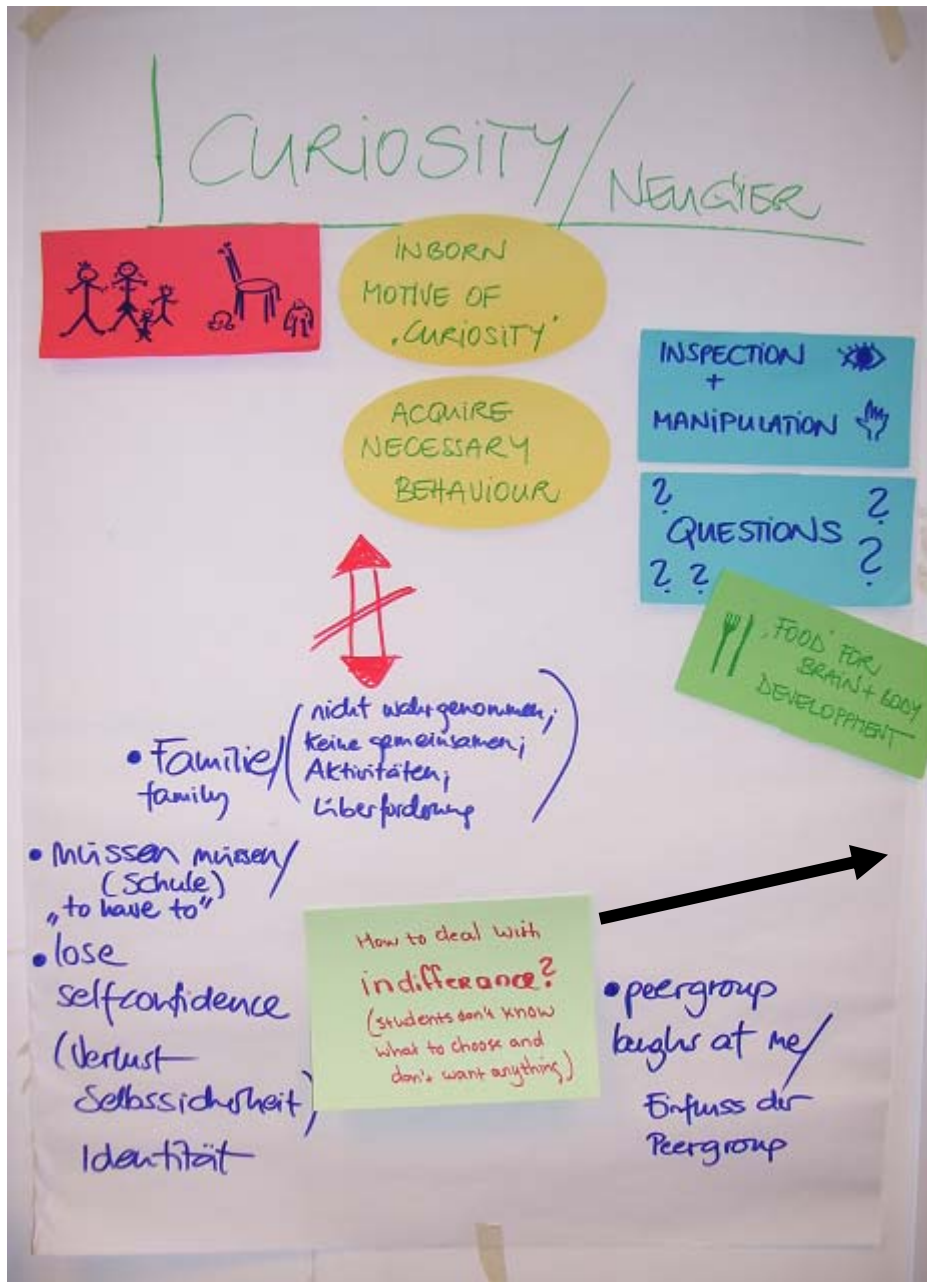 CURIOSITY/NEUGIER
INBORN
MOTIVE OF
‚CURIOSITY'
ACQUIRE
NECESSARY
BEHAVIOUR
INSPECTION
+
MANIPULATION
? ?
QUESTIONS
? ? ?
‚FOOD' FOR
BRAIN + BODY
DEVELOPMENT
• Familie/
family
(nicht wahrgenommen;
keine gemeinsamen;
Aktivitäten;
Überforderung)
• müssen müssen/
(Schule)
„to have to"
• lose
selfconfidence
(Verlust
Selbssicherheit)/
Identität
How to deal with
indifferance?
(students don't know
what to choose and
don't want anything)
• peergroup
laughs at me/
Einfluss der
Peergroup